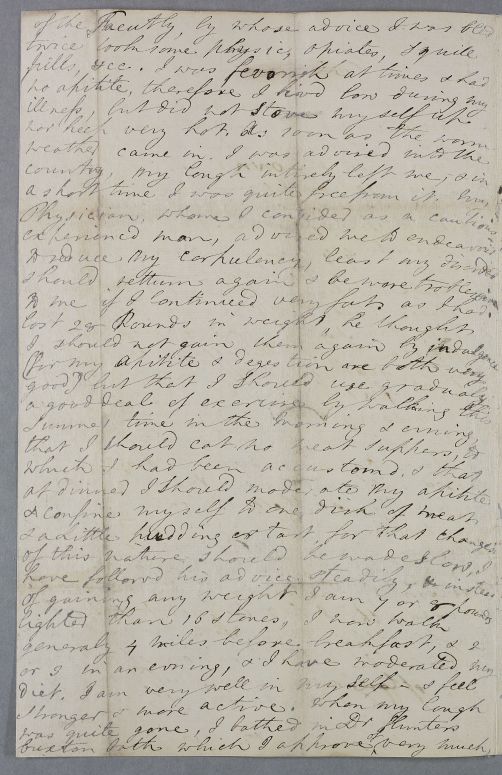 of the Faculty, by whose advice I was bled
twice took some physic, opiates, squile
pills, &cc. I was feverish at times & had
no apitite, therefore I livd low during my
illness, but did not stove myself up
nor keep very hot. As soon as the warm
weather came in. I was advised into the
country, my Cough intirely left me, & in
a short time I was quite free from it. My
Physician, whome I consided as a cautious
experiened man, advised me to endeavour
to reduce my corpulency, least my disorder
should return again & be more troublesom
to me if I continued very fat, as I had
lost 28 Pounds in weight, he thought
I should not gain them again by indulgence
(for my apitite & degestion are both very
good) but that I should use gradualy
a good deal of exercise by walking this
Summer time in the morning & evning
that I should eat no meat suppers, to
which I had been accustomd, & that
at dinner I should moderate my apitite
& confine myself to one dish of meat
& a little pudding or tart, for that changes
of this nature should be made slow, I
have followd his advice steadily, & instead
of gaining any weight I am 7 or 8 pounds
lighted than 16 stones, I now walk
generaly 4 miles before breakfast, & 2
or 3 in an evning, & I have moderated my
diet. I am very well in my self - & feel
stronger & more active. When my Cough
was quite gone, I bathed in Dr Hunters
buxton bath which I approve very much,